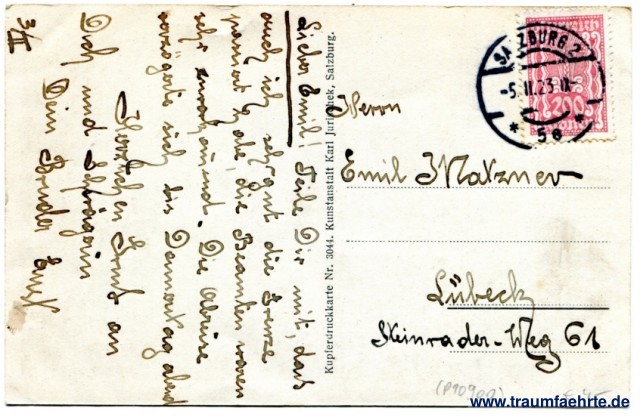 Lieber Emil! Teile Dir mit, dass
auch ich sehr gut die Grenze
passiert habe, die Beamten waren
sehr zuvorkommend. Die Abreise
verzögerte sich bis Samstag abend
Herzlichen Gruß an
Dich und Schwägerin
Dein Bruder
3/II
Kupferdruckkarte Nr. 3044. Kunstanstalt Karl Jurischek, Salzburg.
SALZBURG 2
-5.II.23
* 5a *
200
Herrn
Emil Matzner
Lübeck
Steinrader-Weg 61
www.traumfaehrte.de